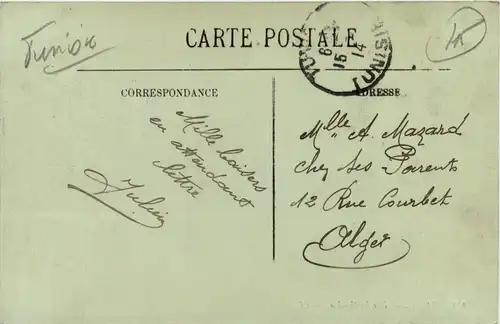 Tunisie
CARTE POSTALE
TUNIS
6
15
14
TUNISIE
CORRESPONDANCE
ADRESSE
Mille baisers
en attendant
lettre
Julien
Mlle A. Mazard
chez ses Parents
12 Rue Courbet
Alger